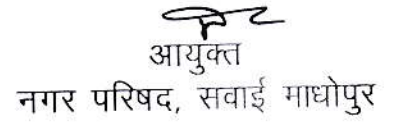 आयुक्त
नगर परिषद, सवाई माधोपुर